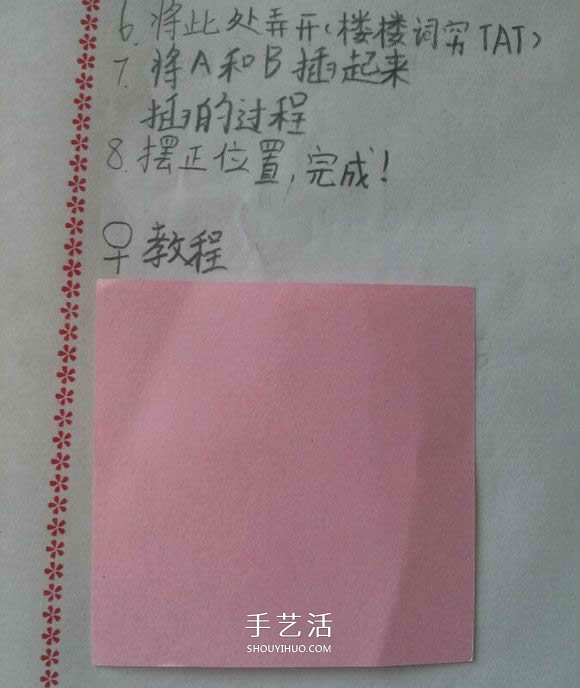 6. 将此处弄开(楼楼词穷TAT)
7. 将A和B插起来
插的过程
8. 摆正位置,完成!
♀教程
手艺活
SHOUYIHUO.COM